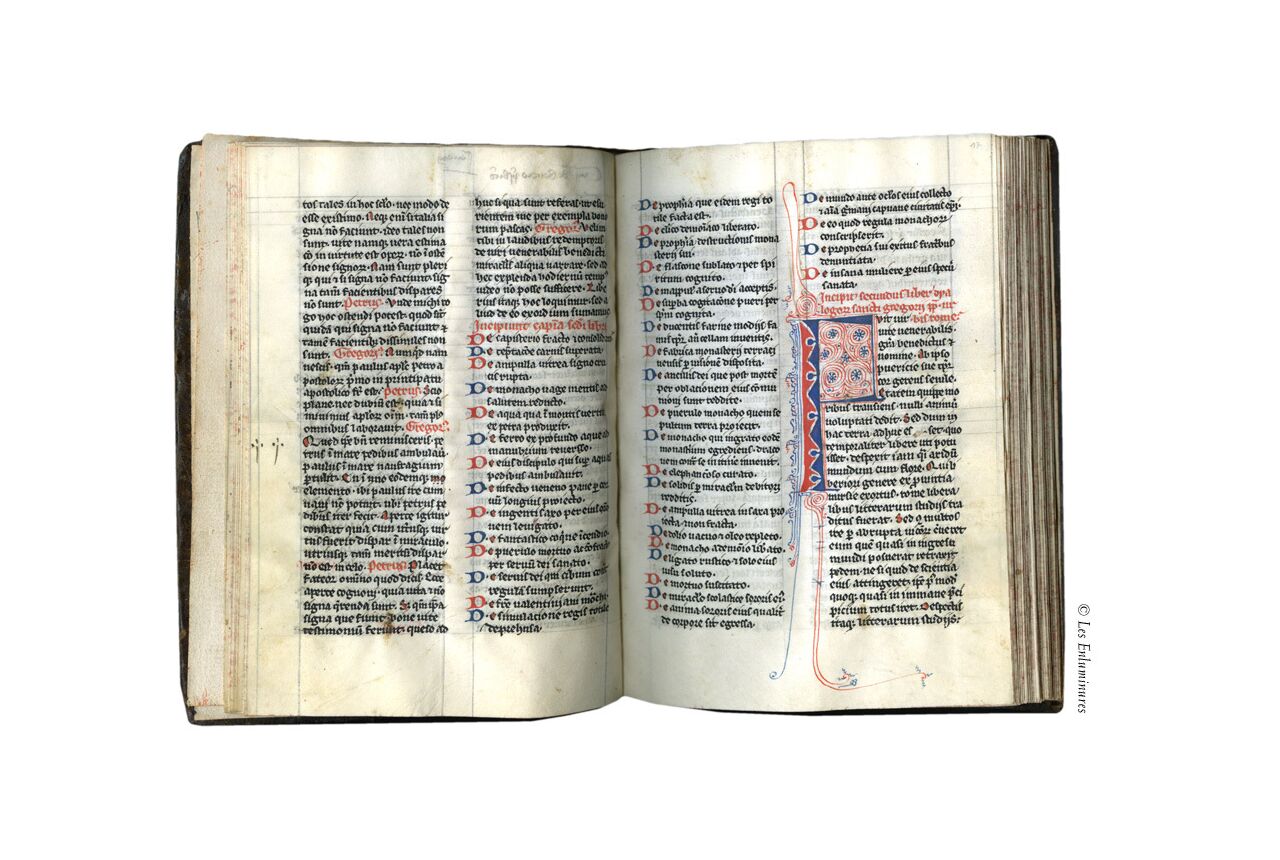 tos tales in hoc sclo. nec modo de
esse existimo. Neq; eni si talia si
gna nō faciunt. ideo tales non
sunt. uite namq; uera estima
cō in uirtute est operū. nō ī osten
sione signorū. Nam sunt pleri
q; qui & si signa nō faciunt. sig
na tam̄ facientibus dispares
nō sunt. Petrus. Vnde michi ro
go hoc ostendi potest quod sint
quidā qui signa nō faciunt &
tamē facientibus dissimiles non
sunt. Gregori9. Nunquid nam
nescis. qm̄ paulus apl's petro a
postolorū pmo in principatu
apostolico fr̄ est. Petrus. Scio
plane. nec dubiū est. quia & si
minimus aplorū oīm. tam̄ plus
omnibus laborauit. Gregori9.
Quod q̄ bn̄ reminisceris. pe
trus ī mare pedibus ambulauit.
paulus ī mare naufragium
pertulit. En ī uno eodemq; mo
elemento. ibi paulus ire cum
naui nō potuit. ubi petrus pe
dibus iter fecit. Aperte igitur
constat quia cum utriusq; uir
tus fuerit dispar ī miraculo.
utriusq; tam̄ meritū dispar
nō est in celo. Petrus. Placet
fateor omnino quod dicis. Ecce
aperte cognoui. quia uita & nō
signa q̄renda sunt. Sed qm̄ ipa
signa que fiunt. bone uite
testimoniū ferunt. queso ad
huc si qua sunt referas. ut esu
rientem me per exempla bono
rum pascas. Gregori9. Vellim
tibi in laudibus redemptoris
de uiri uenerabilis benedicti
miraclis aliqua narrare. sed ad
hec explenda hodiernū temp9
uideo nō posse sufficere. Libe
rius itaq; hec loquimur. si a
liud de eo exordium sumamus.
Incipiunt capl'a sc̄di libri
De capisterio fracto & consolidato
De temptacōe carnis superata.
De ampulla uitrea signo cru
cis rupta.
De monacho uage mentis ad
salutem reducto.
De aqua quā ī montis uertice
ex petra produxit.
De ferro ex profundo aque ad
manubrium reuerso.
De eius discipulo qui sup aquas
pedibus ambulauit.
De infecto ueneno pane p cor
uū longius proiecto.
De ingenti saxo per eius orō
nem leuigato.
De fantastico coq̄ne īcendio.
De puerulo mortuo ac cōfracto
per seruū dei sanato.
De seruis dei qui cibum contra
regulā sumpserunt.
De fr̄e ualentiniani monchi.
De simulacione regis totile
deprehensa.
De prophīa que eidem regi to
tile facta est.
De clico demoniaco liberato.
De prophīa destructionis mona
sterij sui.
De flascone sublato & per spi
ritum cognito.
De mappulis a seruo dei acceptis.
De supba cogitacōne pueri per
spm̄ cognita.
De ducentis farine modijs fa
mis tpr̄e an̄ cellam inuentis.
De fabrica monasterij terraci
nensis p uisionē disposita.
De ancillis dei que post mortē
per oblationem eius cōmu
nioni sunt reddite.
De puerulo monacho quem se
pultum terra proiecit.
De monacho qui īgrato eodē
monasteriū egrediens. draco
nem contr̄ se in itinere inuenit.
De elephancioso curato.
De solidis p miraclm̄ debitori
redditis.
De ampulla uitrea in saxa pro
iecta & non fracta.
De dolio uacuo & oleo repleto.
De monacho a demonio libato.
De ligato rustico & solo eius
uisu soluto.
De mortuo suscitato.
De miraclo scolastice sororis ei9.
De anima sororis eius qualit̄
de corpore sit egressa.
17
De mundo ante oclos eius collecto
& aīa germani capuane ciuitatis epī.
De eo quod regula monachorū
conscripserit.
De prophetia sui exitus fratribus
denuntiata.
De insana muliere p eius specū
sanata.
Incipit secundus liber dya
logorū sancti gregorij pp. ur
bis rome.
Fuit uir
uite uenerabilis.
grā benedictus &
nomine. Ab ipso
puericie sue tpr̄e.
cor gerens senile.
Etatem quippe mo
ribus transiens. nulli animū
uoluptati dedit. Sed dum in
hac terra adhuc esset. quo
temporaliter libere uti potu
isset. despexit iam q̄ aridū
mundum cum flore. Qui li
beriori genere ex puintia
nursie exortus. rome libera
libus litterarum studijs tra
ditus fuerat. Sed cū multos
ire p abrupta uicorū cerneret
eum quē quasi in ingressu
mundi posuerat retraxit
pedem. ne si quid de scientia
eius attingeret. ipe p9 mod9
quoq; quasi in immane pci
picium totus iret. Despectis
itaq; litterarum studijs.
© Les Enluminures